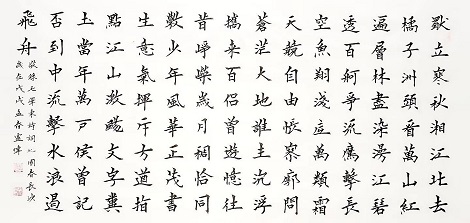 獨立寒秋湘江北去
橘子洲頭看萬山紅
遍層林盡染漫江碧
透百舸爭流鷹擊長
空魚翔淺底萬類霜
天競自由悵寥廓問
蒼茫大地誰主沉浮
攜來百侶曾遊憶往
昔崢嶸歲月稠恰同
學少年風華正茂書
生意氣揮斥方遒指
點江山激揚文字糞
土當年萬戶侯曾記
否到中流擊水浪遏
飛舟
敬錄毛澤東詩詞沁園春長沙
歲在戊戌孟春